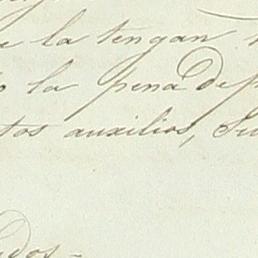 e la tengan
o la pena de p
tos auxilios, Su
dos